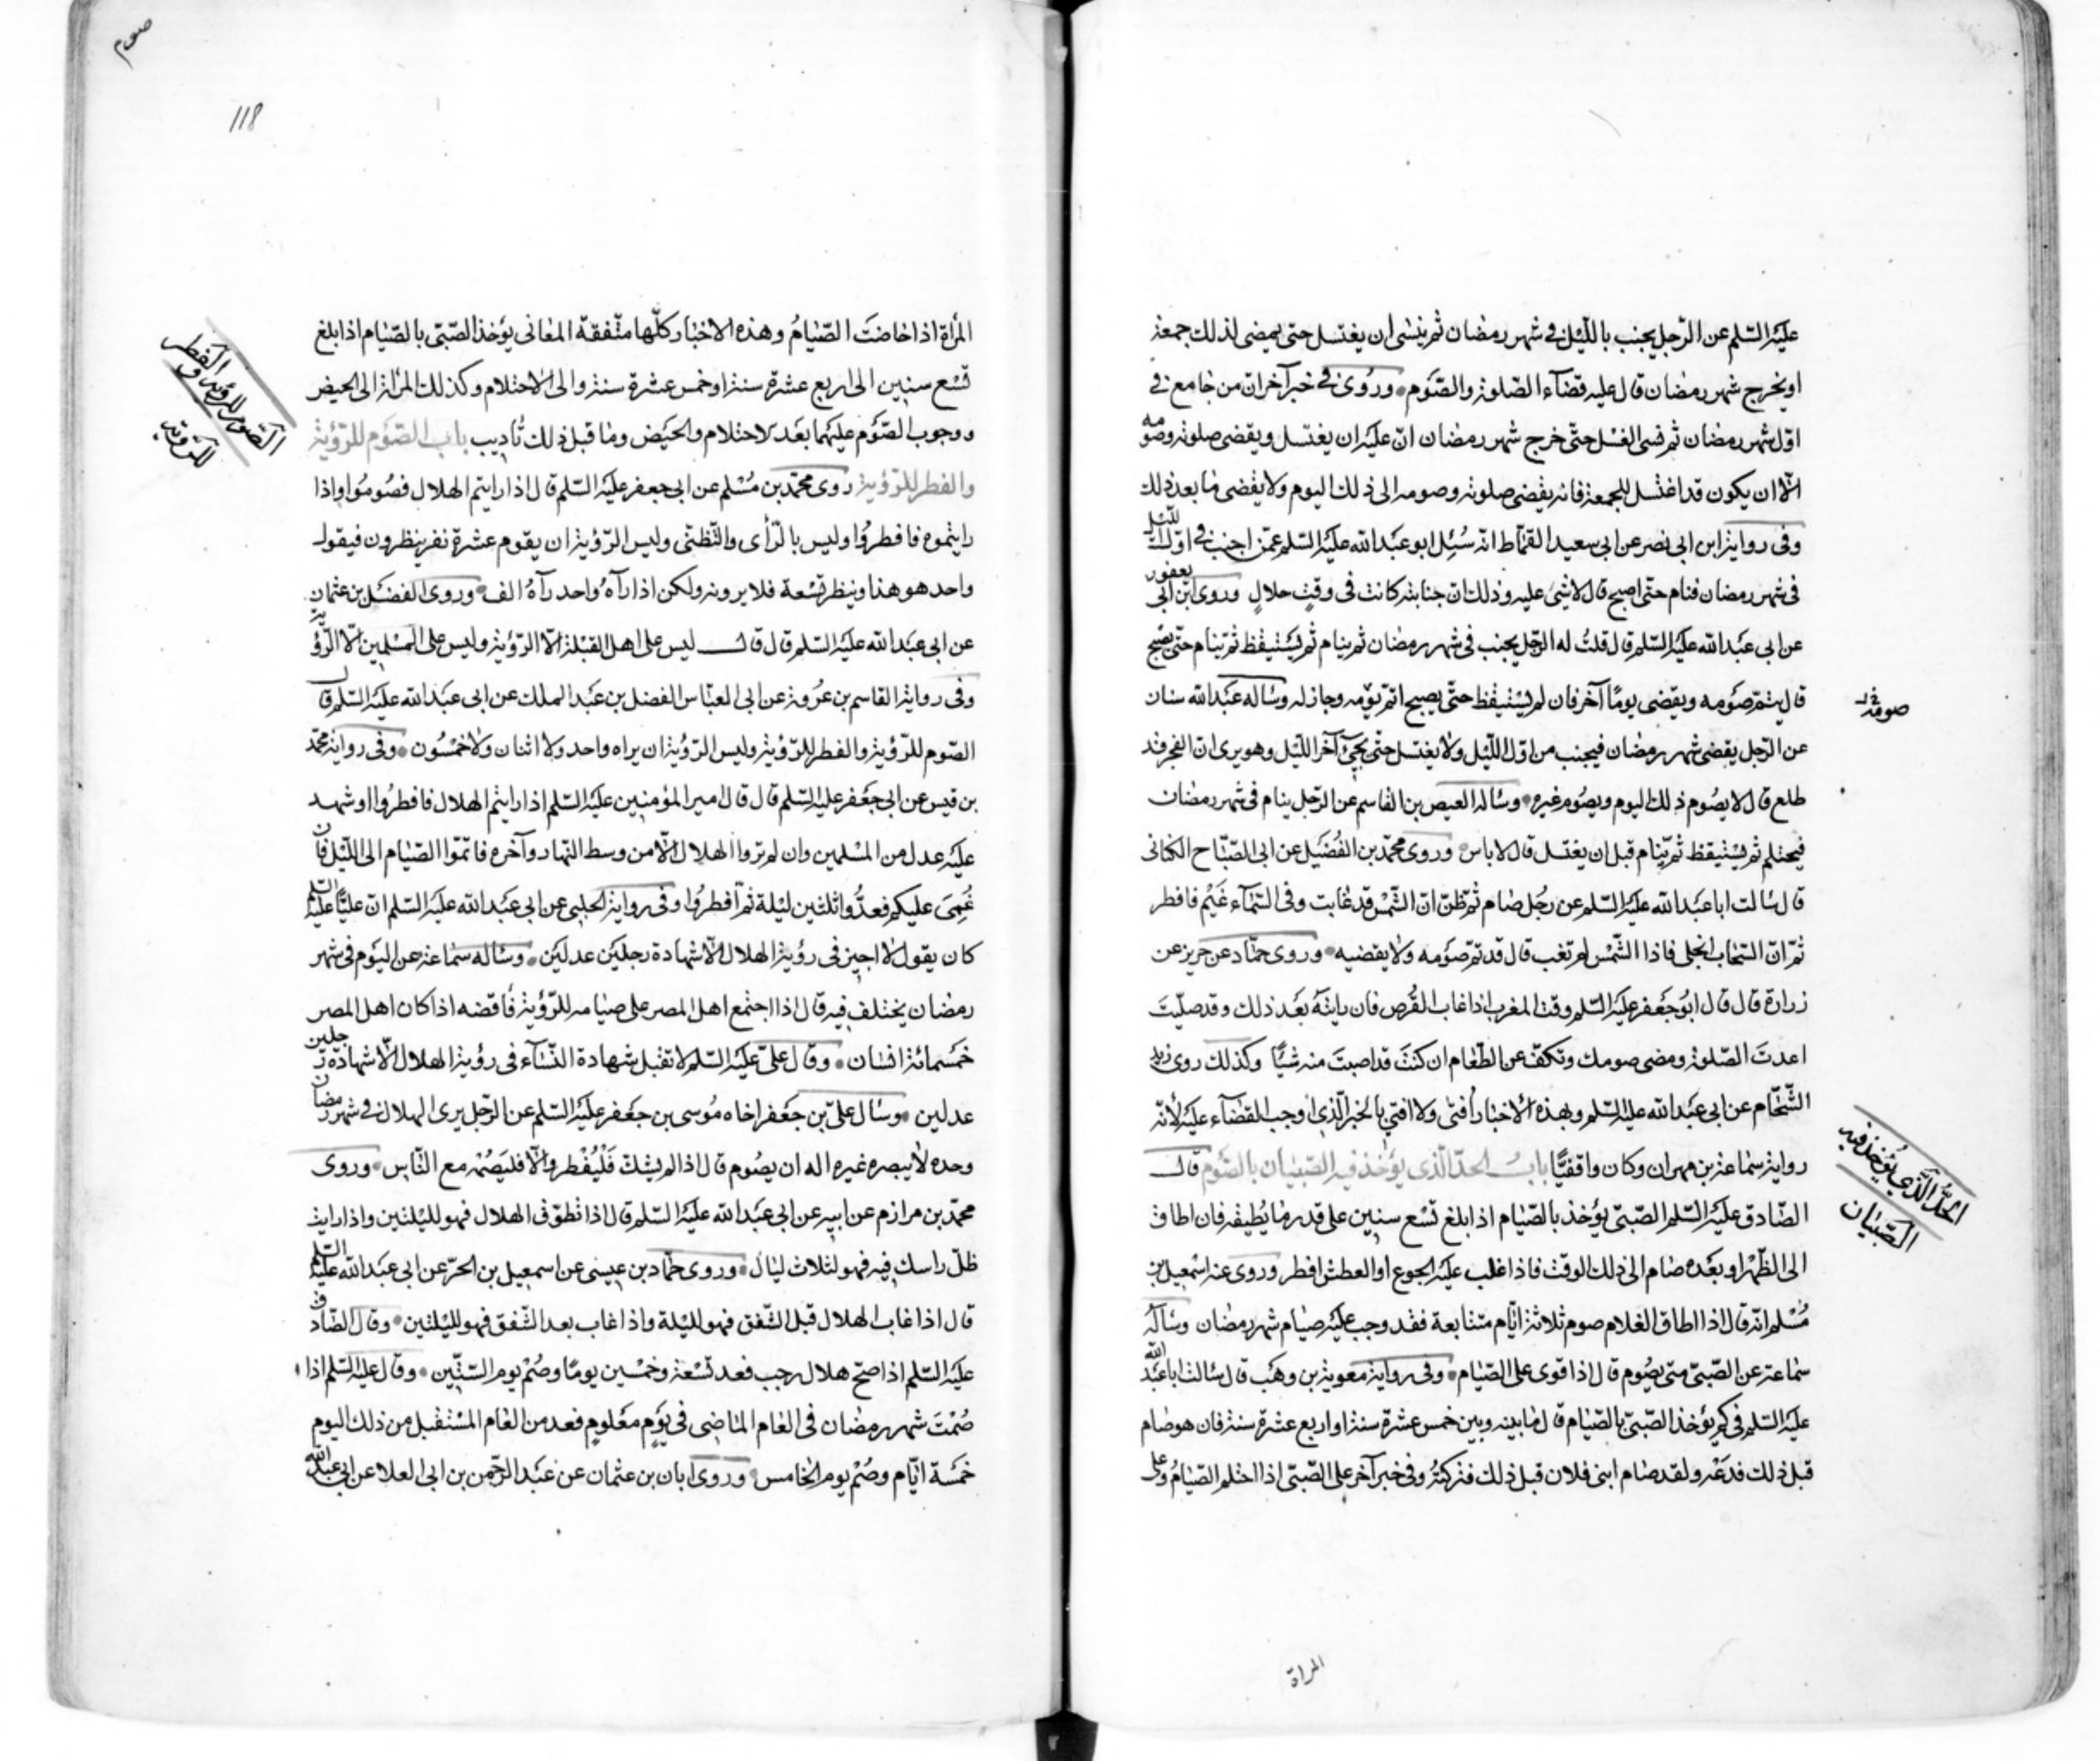 عليه السّلم عن الرّجل يجنب بالليل فى شهر رمضان ثم ينسى ان يغتسل حتى يمضى لذلك جمعة
او يخرج شهر رمضان قال عليه قضآء الصّلوة والصّوم وروى فى خبر آخر ان من جامع فى
اوّل شهر رمضان ثم نسى الغسل حتّى خرج شهر رمضان انّ عليه ان يغتسل ويقضى صلوته وصومه
الّا ان يكون قد اغتسل للجمعة فانه يقضى صلوته وصومه الى ذلك اليوم ولا يقضى ما بعد ذلك
وفى رواية ابن ابى نصر عن ابى سعيد القمّاط انّه سُئِل ابو عبد الله عليه السّلم عمّن اجنب فى اوّل اللّيل
فى شهر رمضان فنام حتّى اصبح قال لا شئ عليه وذلك ان جنابته كانت فى وقتٍ حلالٍ وروى ابن ابى يعفور
عن ابى عبد الله عليه السّلم قال قلتُ له الرّجل يجنب فى شهر رمضان ثم ينام ثم يستيقظ ثم ينام حتّى يصبح
قال يتمّ صومه ويقضى يومًا آخر فان لم يستيقظ حتّى يصبح اتمّ يومه وجاز له وساله عبد الله سنان
صومه
عن الرّجل يقضى شهر رمضان فيجنب من اوّل اللّيل ولا يغتسل حتّى يجئ آخر اللّيل وهو يرى انّ الفجر قد
طلع قال لا يصُوم ذلك اليوم ويصُوم غيره وساله العيص بن القاسم عن الرّجل ينام فى شهر رمضان
فيحتلم ثم يستيقظ ثم ينام قبل ان يغتسل قال لا باس وروى محمّد بن الفُضَيل عن ابى الصّبّاح الكنانى
قال سالت ابا عبد الله عليه السّلم عن رجُل صام ثم ظنّ انّ الشّمس قد غابت وفى السّمآء غَيْمٌ فافطر
ثمّ انّ السّحاب انجلى فاذا الشّمس لم تغب قال قد تمّ صومه ولا يقضيه وروى حمّاد عن حريز عن
زرارة قال قال ابو جعفر عليه السّلم وقت المغرب اذا غاب القُرص فان رايته بعد ذلك وقد صلّيتَ
اعدتَ الصّلوة ومضى صومك وتكفّ عن الطّعام ان كنتَ قد اصبتَ منه شيئًا وكذلك روى زيد
الشّحّام عن ابى عبد الله عليه السّلم وبهذه الاخبار أفتى ولا افتى بالخبر الّذى اوجب القضآء عليه لأنّه
رواية سماعة بن مهران وكان واقفيًّا بابُ الحدّ الّذى يؤخذ فيه الصّبيان بالصّوم قال
الحدّ الّذى يُؤخذ فيه
الصّبيان
الصّادق عليه السّلم الصّبىّ يؤخذ بالصّيام اذا بلغ تسع سنين على قدر ما يُطيقه فان اطاق
الى الظّهر او بعده صام الى ذلك الوقت فاذا غلب عليه الجوع او العطش افطر وروى عنه اسمعيل بن
مُسْلم انّه قال اذا اطاق الغلام صوم ثلاثة ايّام متتابعة فقد وجب عليه صيام شهر رمضان وساله
سماعة عن الصّبىّ متى يصُوم قال اذا قوى على الصّيام وفى رواية معوية بن وهَب قال سالت ابا عبد الله
عليه السّلم فى كم يؤخذ الصّبىّ بالصّيام قال ما بينه وبين خمس عشرة سنة او اربع عشرة سنة فان هو صام
قبل ذلك فدَعْه ولقد صام ابنى فلان قبل ذلك فتركتُه وفى خبر آخر على الصّبىّ اذا احتلم الصّيامُ وعلى
المراة
صوم
118
المرأة اذا حاضتَ الصّيامُ وهذه الاخبار كلّها متّفقة المعانى يؤخذ الصّبىّ بالصّيام اذا بلغ
تسع سنين الى اربع عشرة سنة او خمس عشرة سنة والى الاحتلام وكذلك المرأة الى الحيض
ووجوب الصّوم عليهما بعد الاحتلام والحيَض وما قبل ذلك تأديب باب الصّوم للرّؤية
الصّوم للرّؤية والفطر
للرّؤية
والفطر للرّؤية روى محمّد بن مُسْلم عن ابى جعفر عليه السّلم قال اذا رايتم الهلال فصُومُوا واذا
رايتموه فافطرُوا وليس بالرّأى والتّظنّى وليس الرّؤية ان يقوم عشرة نفر ينظرون فيقول
واحد هو هذا وينظر تسْعة فلا يرونه ولكن اذا رآهُ واحد رآهُ الف وروى الفضل بن عثمان
عن ابى عبد الله عليه السّلم قال قال ليس على اهل القبْلة الّا الرّؤية وليس على المسْلمين الّا الرّؤية
وفى رواية القاسم بن عُروة عن ابى العبّاس الفضل بن عبد الملك عن ابى عبد الله عليه السّلم قال
الصّوم للرّؤية والفطر للرّؤية وليس الرّؤية ان يراه واحد ولا اثنان ولا خمْسُون وفى رواية محمّد
بن قيس عن ابى جعفر عليه السّلم قال قال امير المؤمنين عليه السّلم اذا رايتم الهلال فافطرُوا او شهد
عليه عدل من المسْلمين وان لم تروا الهلال الّا من وسط النّهار وآخره فاتمّوا الصّيام الى اللّيل فان
غُمِىَ عليكم فعدُّوا ثلثين ليلة ثمّ افطرُوا وفى رواية الحلبى عن ابى عبد الله عليه السّلم انّ عليًّا عليه السّلم
كان يقول لا اجيز فى رؤية الهلال الّا شهادة رجلين عدلين وساله سماعة عن اليوم فى شهر
رمضان يختلف فيه قال اذا اجتمع اهل المصر على صيامه للرّؤية فاقضه اذا كان اهل المصر
خمسمائة انسان وقال علىّ عليه السّلم لا تقبل شهادة النّسآء فى رؤية الهلال الّا شهادة رجلين
عدلين وسال علىّ بن جعفر اخاه مُوسى بن جعفر عليه السّلم عن الرّجل يرى الهلال فى شهر رمضان
وحده لا يبصره غيره اله ان يصُوم قال اذا لم يشكّ فَلْيُفْطر والّا فليَصُمْه مع النّاس وروى
محمّد بن مرازم عن ابيه عن ابى عبد الله عليه السّلم قال اذا تطوّق الهلال فهو لليلتين واذا رايت
ظلّ راسك فيه فهو لثلاث ليال وروى حمّاد بن عيسى عن اسمعيل بن الحرّ عن ابى عبد الله عليه السّلم
قال اذا غاب الهلال قبل الشّفق فهو لليلة واذا غاب بعد الشّفق فهو لليلتين وقال الصّادق
عليه السّلم اذا صحّ هلال رجب فعد تسْعة وخمْسين يومًا وصُمْ يوم السّتّين وقال عليه السّلم اذا
صُمْتَ شهر رمضان فى العام الماضى فى يومٍ معلومٍ فعد من العام المسْتقبل من ذلك اليوم
خمسة ايّام وصُمْ يوم الخامس وروى ابان بن عثمان عن عبد الرّحمن بن ابى العلا عن ابى عبد الله